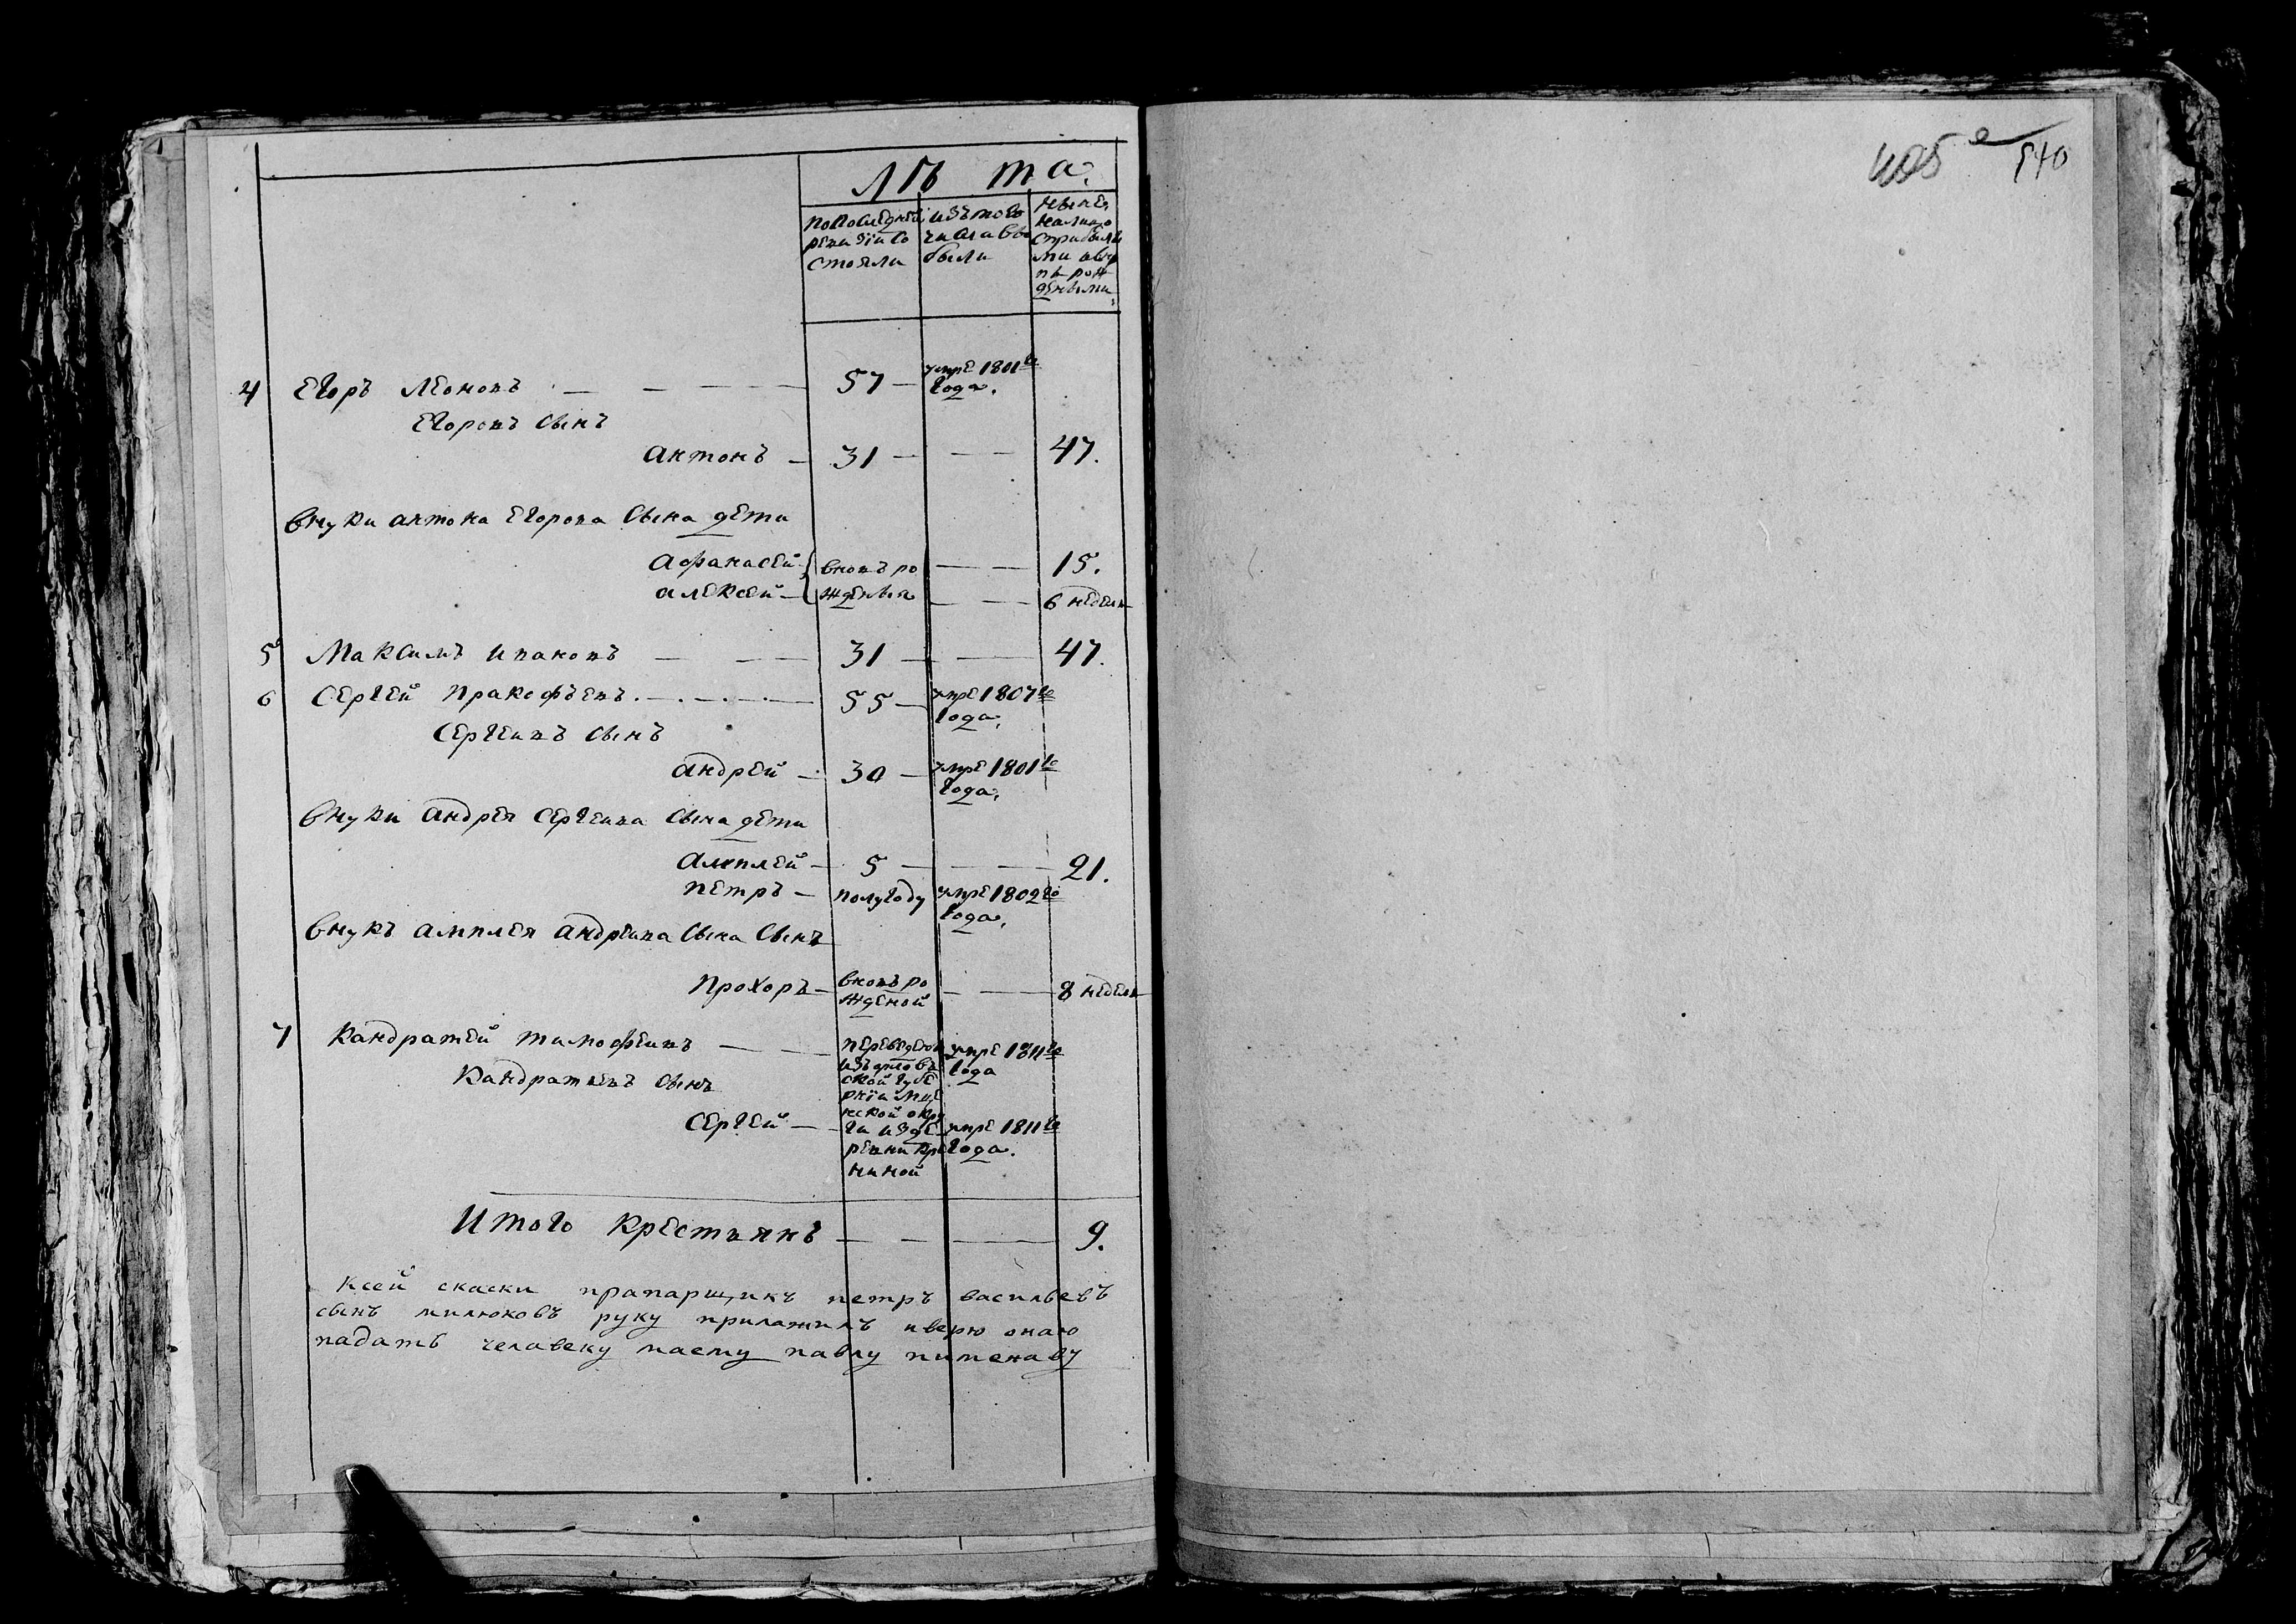 405 540
Лѣта.
попоследней ревизіи со стояли
изътого числа вы были
ныне налицо сприбылы ми ивно въ рож дѣными
4 Егоръ Леоновъ 57 умре 1801го года.
Егоровъ сынъ
антонъ 31 47.
внуки антона Егорова сына дети
афанасей вновъ ро 15.
алексей жденыя 6 недель
5 Максимъ ивановъ 31 47.
6 Сергей Пракофьевъ 55 умре 1807го года.
Сергеивъ сынъ
андрей 30 умре 1801го года.
внуки андрея Сергеива сына дети
амплей 5 21.
петръ полугоду умре 1802го года.
внукъ амплея андреива сына сынъ
Прохоръ вновъ ро жденой 8 недель
7 Кандратей тимофеивъ переведены умре 1811го года
Кандратьевъ сынъ изъ орловъ ской губе рніи мце нской окру
Сергей ги изде ревни кре ниной умре 1811го года.
Итого крестьянъ 9.
Ксей скаски прапарщикъ петръ васильевъ
сынъ милюковъ руку приложилъ иверю онаю
падать человеку маему павлу пименаву